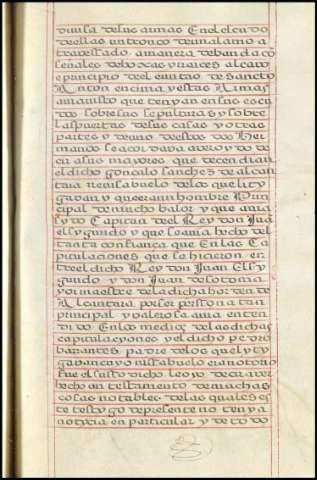 divisa de sus armas En el escudo
de ellas un tronco de un alamo a
travesado a manera de banda co
señales de hojas y raices al cabo
e principio del evitas de Sancto
Anton encima y estas Armas
avisto que tenyan en sus escu
dos sobre sus sepulturas y sobre
las puertas de sus casas y otras
partes y de uno destos dos Her
manos se acordava aver oydo de
cir a sus mayores que decendian
el dicho gonçalo sanchez de alcan
tara Revisabuelo de los que lity
gavan y que era un hombre Prin
cipal de mucho balor y que avia
sydo Capitan del Rey don Juā
el sygundo y que se avia hecho del
tanta confiança que En las Ca
pitulaciones que se hicieron en
tre el dicho Rey don Juan El sy
gundo y don Juan de sotoma
yor maestre de la dicha horden de
Alcantara por ser persona tan
principal y valerosa avia enten
dido En los medios de las dichas
capitulacyones y el dicho pedro
barantes padre de los que lyty
gaban cuyo visabuelo era notorio
fue el susodicho le oyo decir aver
hecho un testamento de muchas
cosas notables de las quales es
te testygo de presente no tenya
notycia en particular y de todo